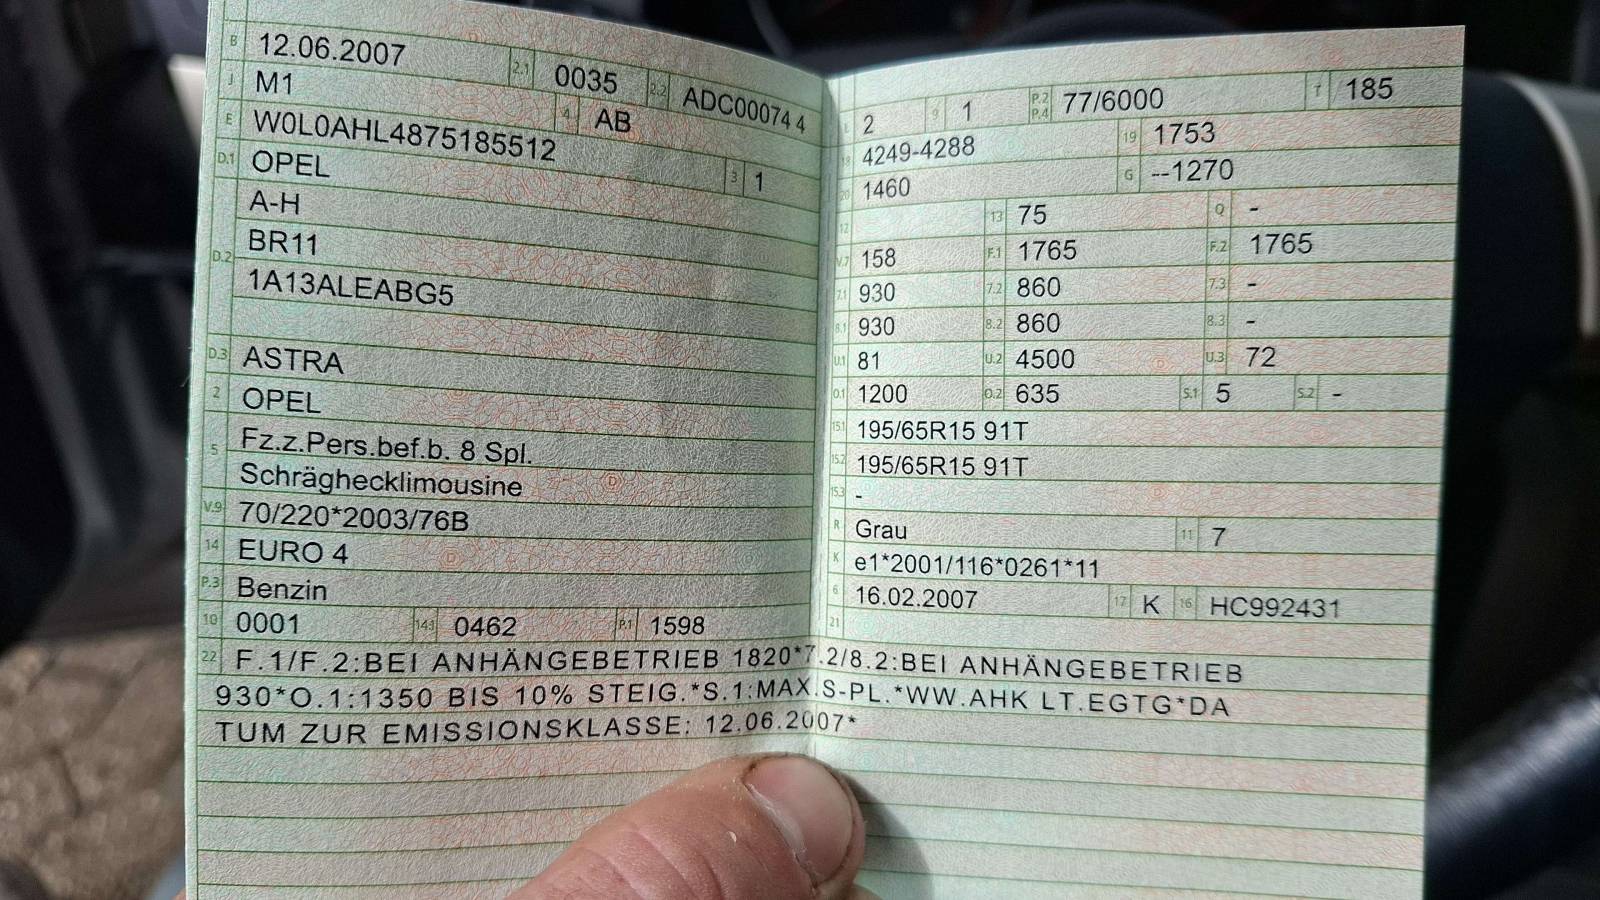 B 12.06.2007 2.1 0035 2.2 ADC00074 4
J M1 4 AB
E W0L0AHL4875185512
D.1 OPEL 3 1
A-H
D.2 BR11
1A13ALEABG5
D.3 ASTRA
2 OPEL
5 Fz.z.Pers.bef.b. 8 Spl.
Schräghecklimousine
V.9 70/220*2003/76B
14 EURO 4
P.3 Benzin
10 0001 14.1 0462 P.1 1598
L 2 9 1 P.2 P.4 77/6000 T 185
18 4249-4288 19 1753
20 1460 G --1270
12 13 75 Q -
V.7 158 F.1 1765 F.2 1765
7.1 930 7.2 860 7.3 -
8.1 930 8.2 860 8.3 -
U.1 81 U.2 4500 U.3 72
O.1 1200 O.2 635 S.1 5 S.2 -
15.1 195/65R15 91T
15.2 195/65R15 91T
15.3 -
R Grau 11 7
K e1*2001/116*0261*11
6 16.02.2007 17 K 16 HC992431
21
22 F.1/F.2:BEI ANHÄNGEBETRIEB 1820*7.2/8.2:BEI ANHÄNGEBETRIEB
930*O.1:1350 BIS 10% STEIG.*S.1:MAX.S-PL.*WW.AHK LT.EGTG*DA
TUM ZUR EMISSIONSKLASSE: 12.06.2007*